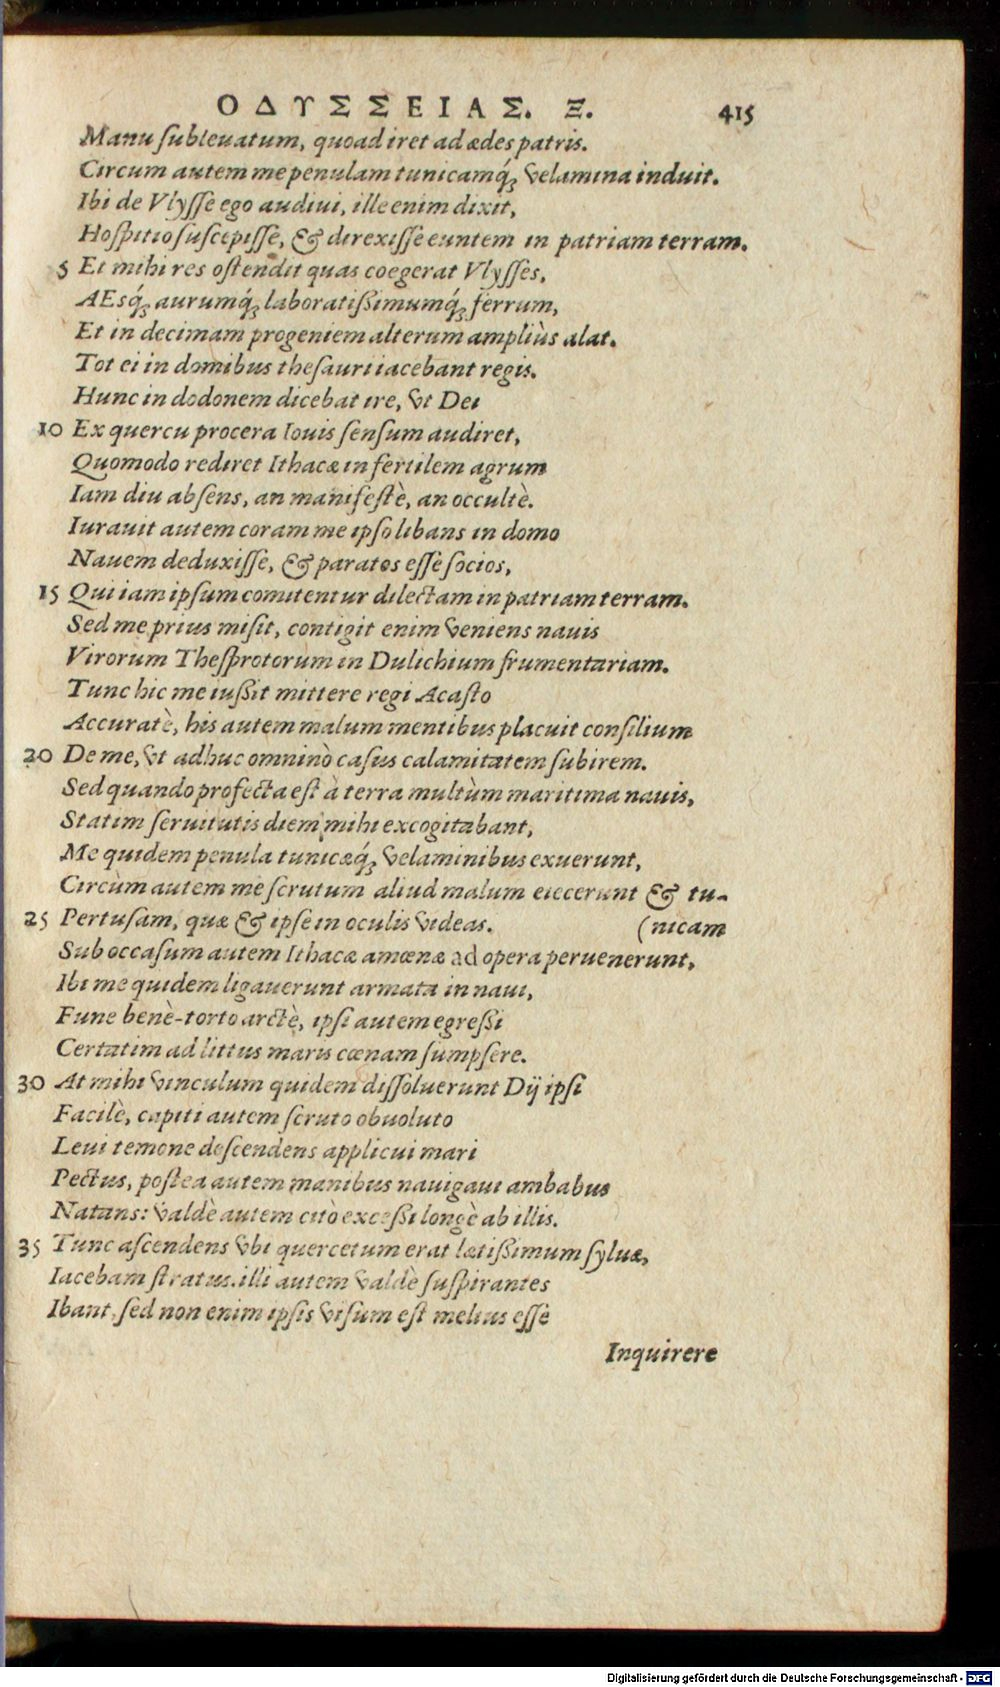 ΟΔΥΣΣΕΙΑΣ. Ξ. 415
Manu ſubleuatum, quoad iret ad ædes patris.
Circum autem me penulam tunicamq́; velamina induit.
Ibi de Vlyſſe ego audiui, ille enim dixit,
Hoſpitio ſuſcepiſſe, & direxiſſe euntem in patriam terram.
5 Et mihi res oſtendit quas coegerat Vlyſſes,
AEsq́; aurumq́; laboratiſsimumq́; ferrum,
Et in decimam progeniem alterum ampliùs alat.
Tot ei in domibus theſauri iacebant regis.
Hunc in dodonem dicebat ire, vt Dei
10 Ex quercu procera Iouis ſenſum audiret,
Quomodo rediret Ithacæ in fertilem agrum
Iam diu abſens, an manifeſtè, an occultè.
Iurauit autem coram me ipſo libans in domo
Nauem deduxiſſe, & paratos eſſe ſocios,
15 Qui iam ipſum comitentur dilectam in patriam terram.
Sed me prius miſit, contigit enim veniens nauis
Virorum Theſprotorum in Dulichium frumentariam.
Tunc hic me iuſsit mittere regi Acaſto
Accuratè, his autem malum mentibus placuit conſilium
20 De me, vt adhuc omninò caſus calamitatem ſubirem.
Sed quando profecta eſt à terra multùm maritima nauis,
Statim ſeruitutis diem mihi excogitabant,
Me quidem penula tunicæq́; velaminibus exuerunt,
Circùm autem me ſcrutum aliud malum eiecerunt & tu-
25 Pertuſam, quæ & ipſe in oculis videas. (nicam
Sub occaſum autem Ithacæ amœnæ ad opera peruenerunt,
Ibi me quidem ligauerunt armata in naui,
Fune benè-torto arctè, ipſi autem egreſsi
Certatim ad littus maris cœnam ſumpſere.
30 At mihi vinculum quidem diſſoluerunt Dij ipſi
Facilè, capiti autem ſcruto obuoluto
Leui temone deſcendens applicui mari
Pectus, poſtea autem manibus nauigaui ambabus
Natans: valdè autem cito exceſsi longè ab illis.
35 Tunc aſcendens vbi quercetum erat lætiſsimum ſyluæ,
Iacebam ſtratus. illi autem valdè ſuſpirantes
Ibant, ſed non enim ipſis viſum eſt melius eſſe
Inquirere
Digitalisierung gefördert durch die Deutsche Forschungsgemeinschaft - DFG